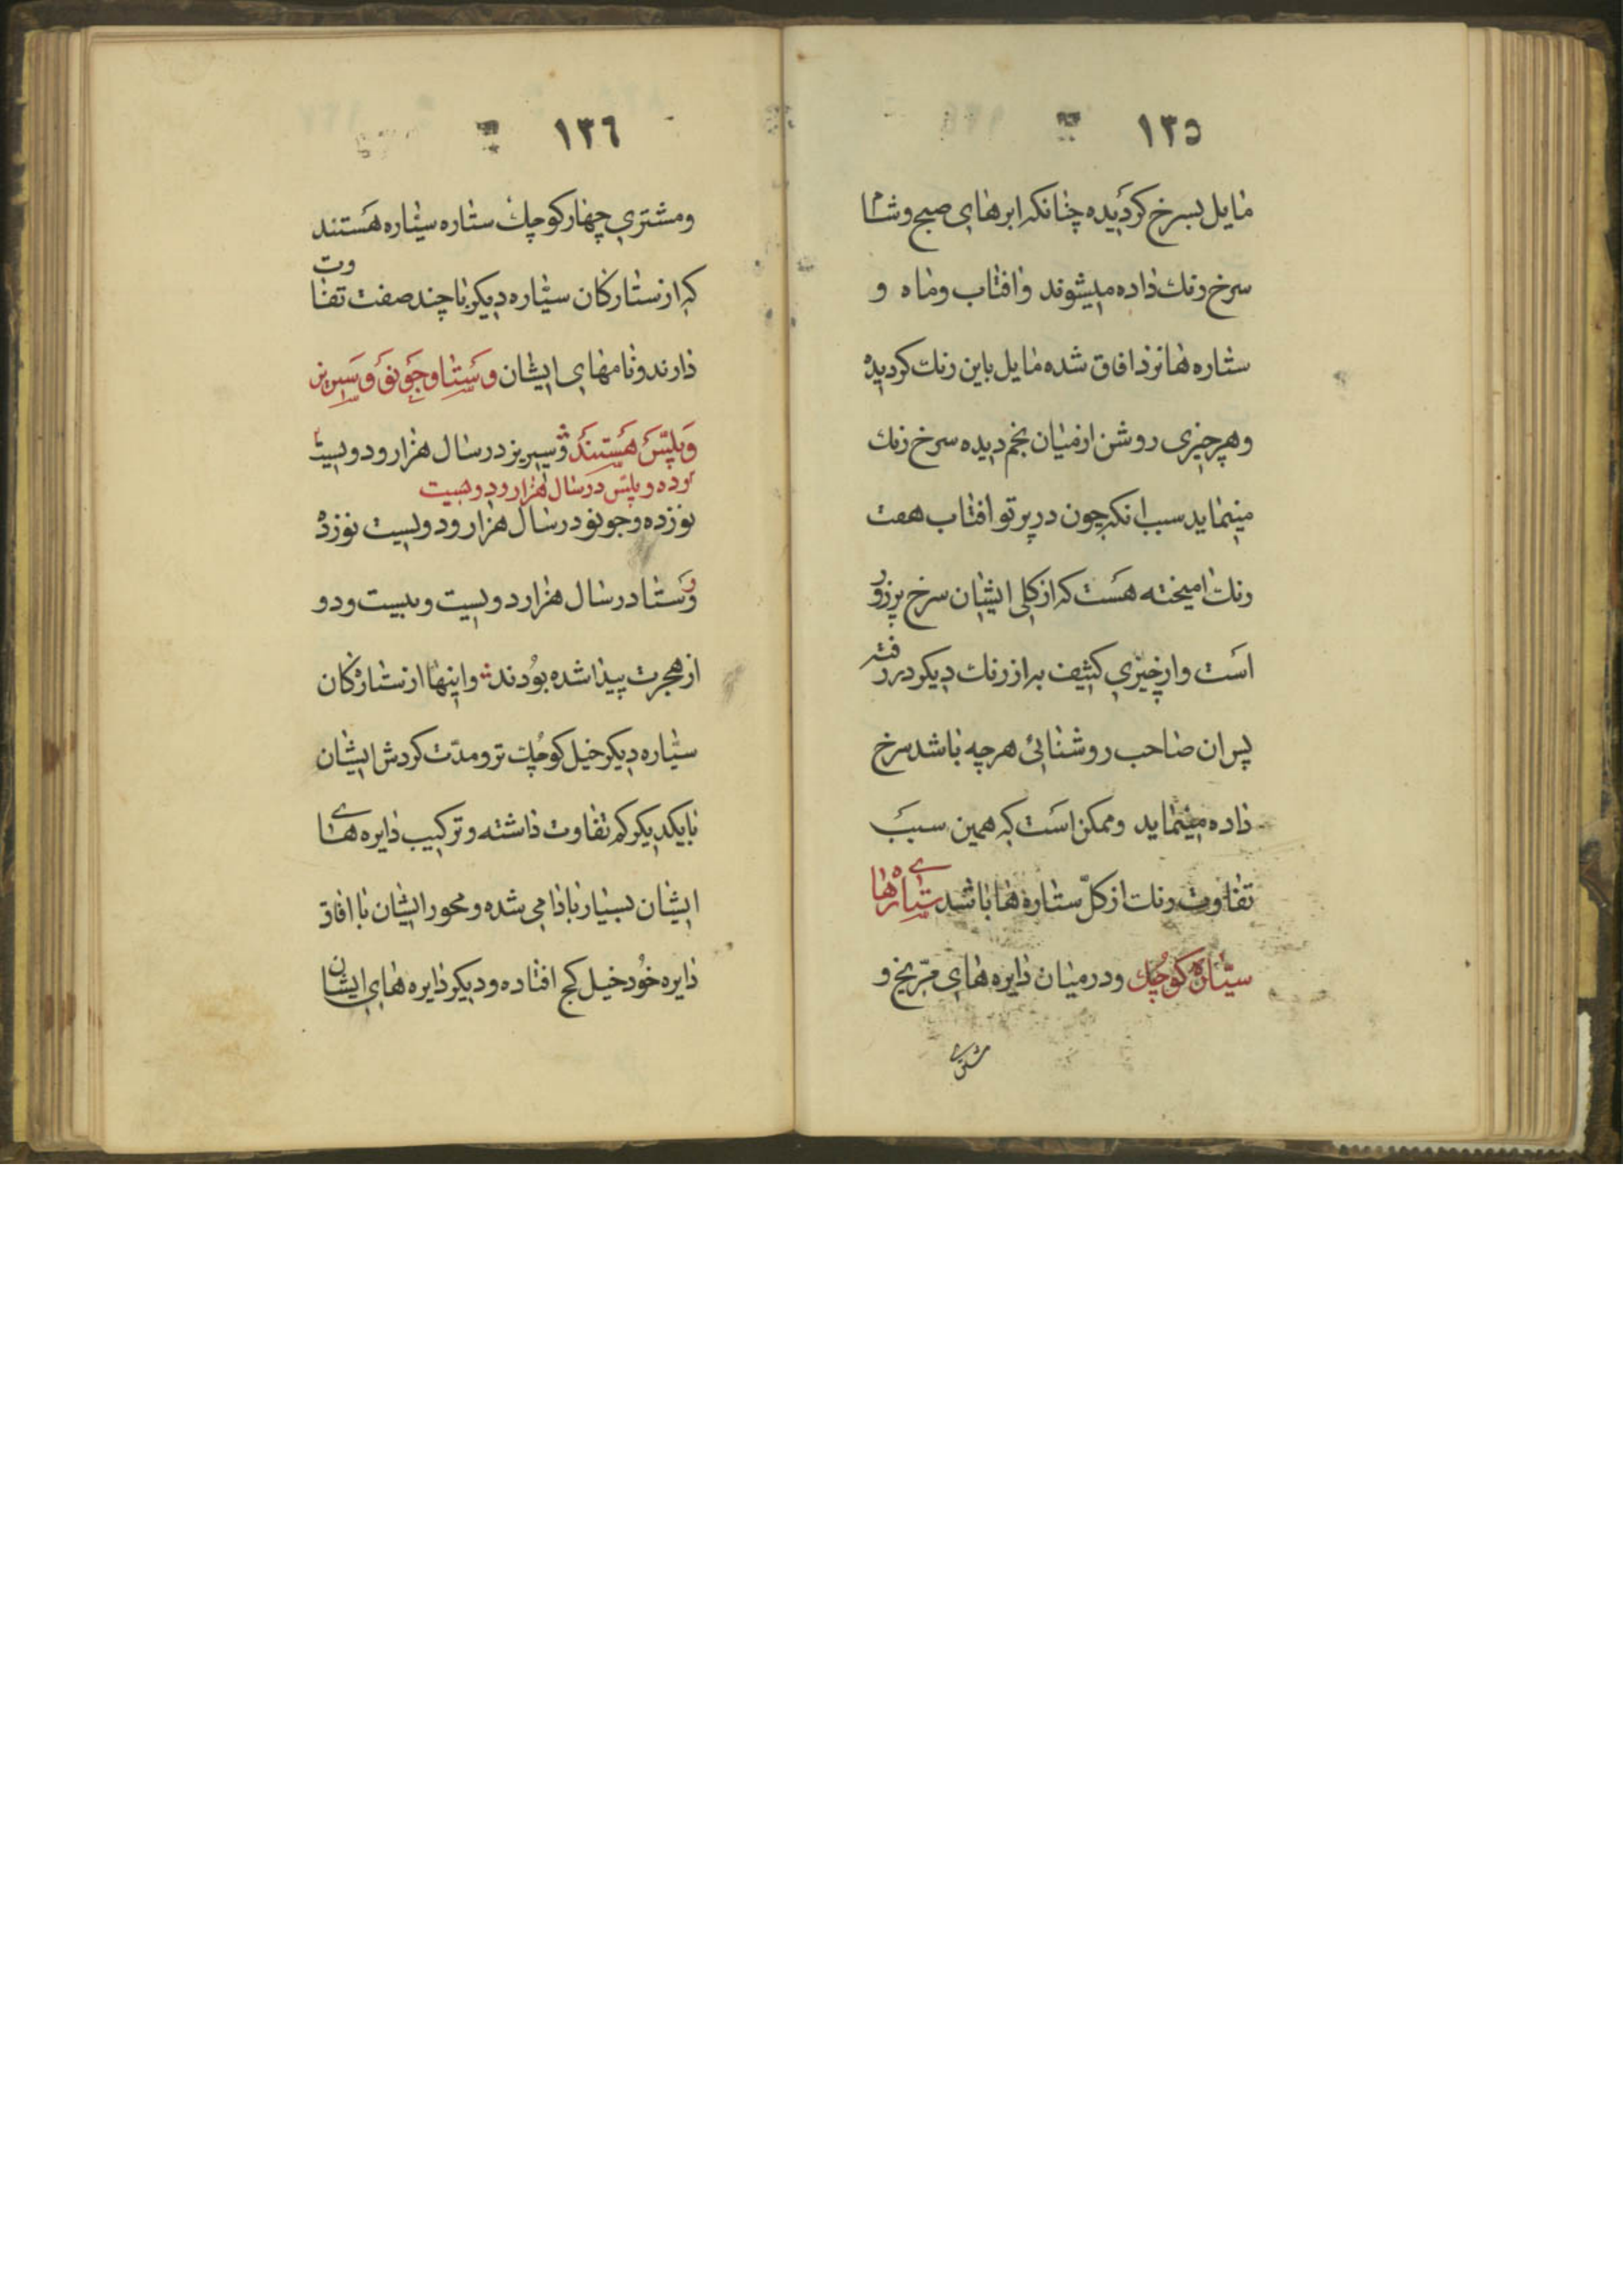 ١٣٥
مایل بسرخ کردیده چنانکه ابرهای صبح و شام
سرخ رنك داده میشوند وافتاب وماه و
ستاره ها نزد افاق شده مایل باین رنك کردیده
وهر چیزی روشن از میان نجم دیده سرخ رنك
مینماید سبب انکه چون در پرتو افتاب هفت
رنك امیخته هست که از کلی ایشان سرخ پرزور
است واز چیزی کثیف به از رنك دیکر در رفته
پس ان صاحب روشنائی هر چه باشد سرخ
داده مینماید وممکن است که همین سبب
تفاوت رنك از کلّ ستاره ها باشد ستاره های
سیّاره کوچك ودر میان دایره های مرّیخ و
مشتری
١٣٦
ومشتری چهار کوچك ستاره سیّاره هستند
که از ستارکان سیّاره دیکر با چند صفت تفاوت
دارند ونامهای ایشان وستا وجونو وسیریز
وپلّس هستند وسیریز در سال هزار ودویست
ودر سال هزار ودویست
نوزده وجونو در سال هزار ودویست نوزده
وستا در سال هزار دویست وبیست ودو
از هجرت پیدا شده بودند واینها از ستارکان
سیّاره دیکر خیل کوچك تر ومدّت کردش ایشان
با یکدیکر کم تفاوت داشته وترکیب دایره های
ایشان بسیار بادامی شده ومحور ایشان با افاق
دایره خود خیل کج افتاده ودیکر دایره های ایشان